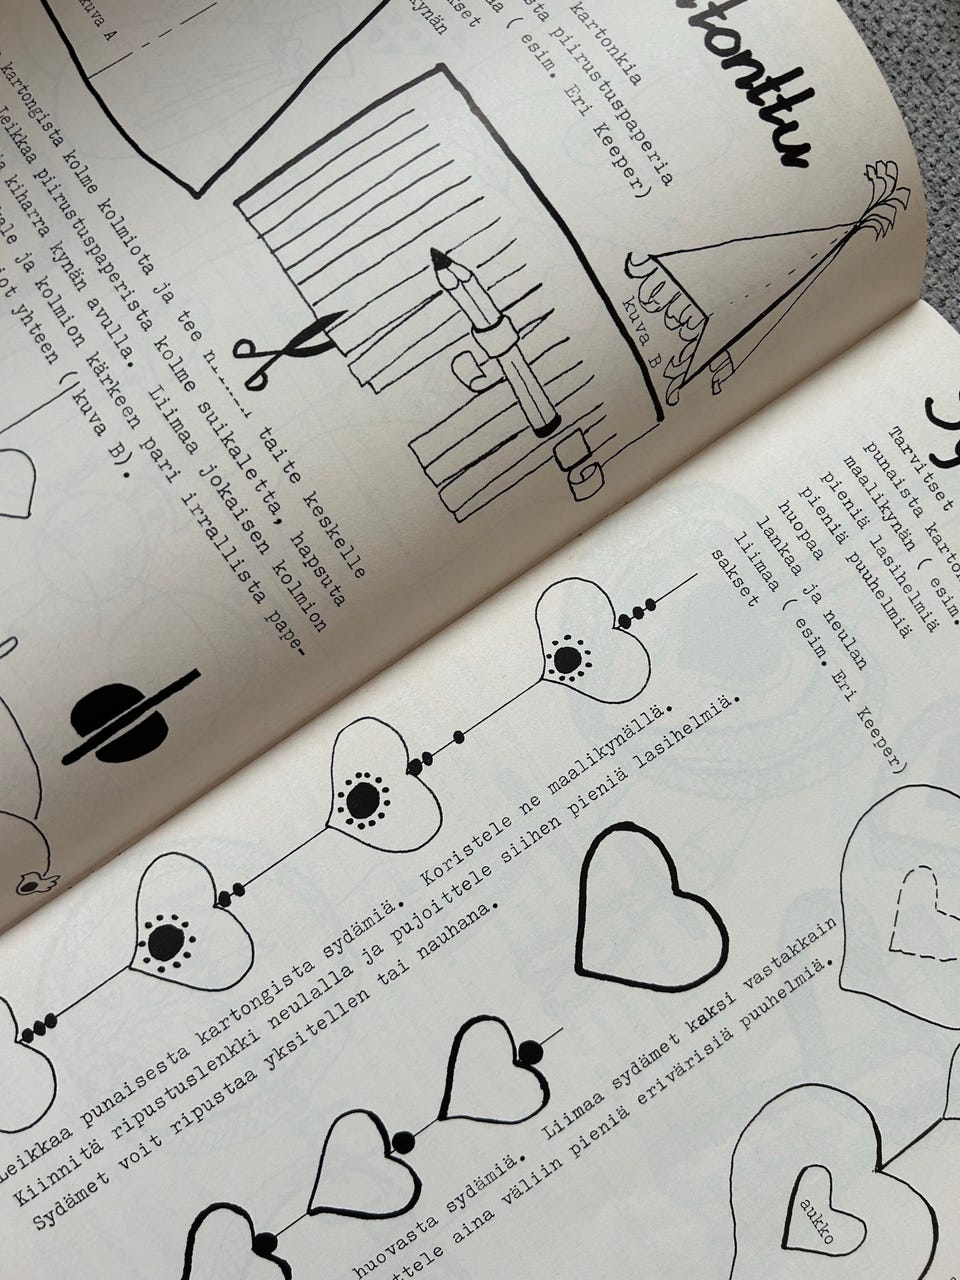 tonttu
kartonkia
piirustuspaperia
( esim. Eri Keeper)
kuva A
kuva B
kartongista kolme kolmiota ja tee taite keskelle
Leikkaa piirustuspaperista kolme suikaletta, hapsuta
ja kiharra kynän avulla. Liimaa jokaisen kolmion
ja kolmion kärkeen pari irrallista pape-
yhteen (kuva B).
Tarvitset
punaista
maalikynän ( esim.
pieniä lasihelmiä
pieniä puuhelmiä
huopaa
lankaa ja neulan
liimaa ( esim. Eri Keeper)
sakset
Leikkaa punaisesta kartongista sydämiä. Koristele ne maalikynällä.
Kiinnitä ripustuslenkki neulalla ja pujoittele siihen pieniä lasihelmiä.
Sydämet voit ripustaa yksitellen tai nauhana.
huovasta sydämiä. Liimaa sydämet kaksi vastakkain
ttele aina väliin pieniä erivärisiä puuhelmiä.
aukko